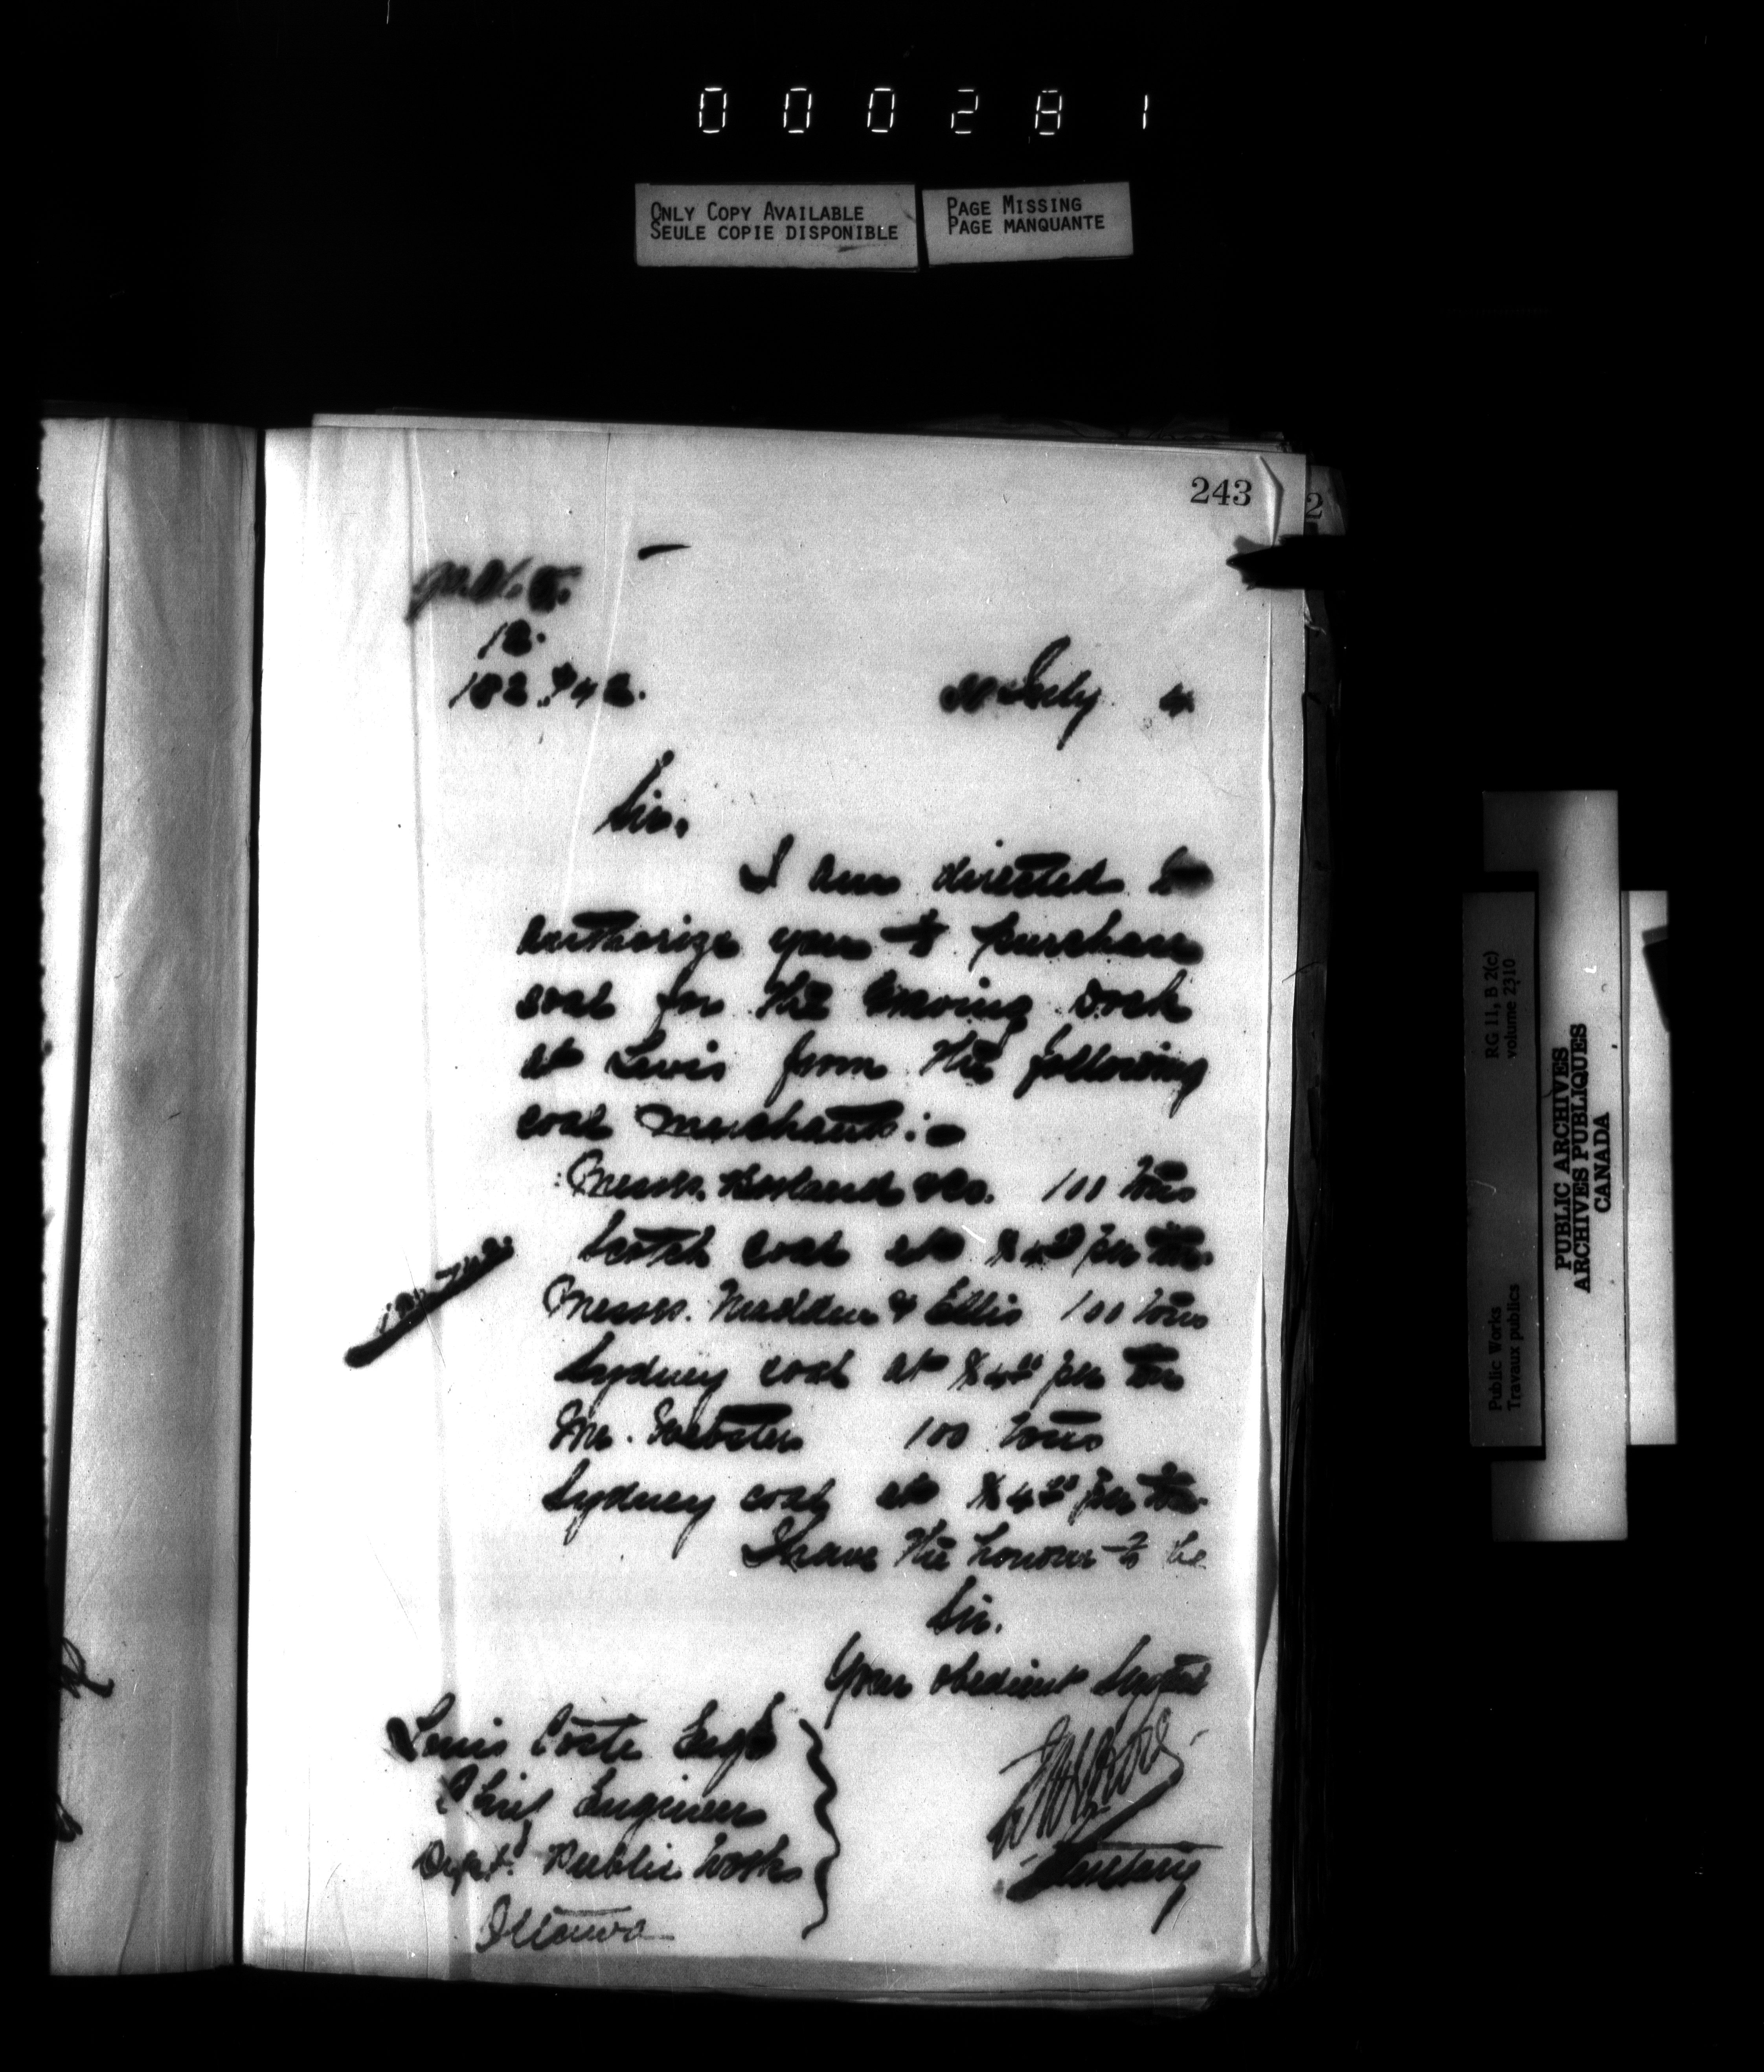 000281
ONLY COPY AVAILABLE
SEULE COPIE DISPONIBLE
PAGE MISSING
PAGE MANQUANTE
243
2
12.
182.
July 4
Sir,
I am directed to
authorize you to purchase
coal for the Graving Dock
at Levis from the following
coal merchants:-
Messrs. & Co. 100 tons
Scotch coal at $4 per ton.
Messrs. Madden & Ellis 100 tons
Sydney coal at $4 per ton
Mr. Webster 100 tons
Sydney coal at $4 per ton.
I have the honour to be
Sir.
Your obedient Servant
Louis Coste Esqre
Chief Engineer
Dept. Public Works
Ottawa
Secretary
RG 11, B 2(c)
volume 2310
Public Works
Travaux publics
PUBLIC ARCHIVES
ARCHIVES PUBLIQUES
CANADA